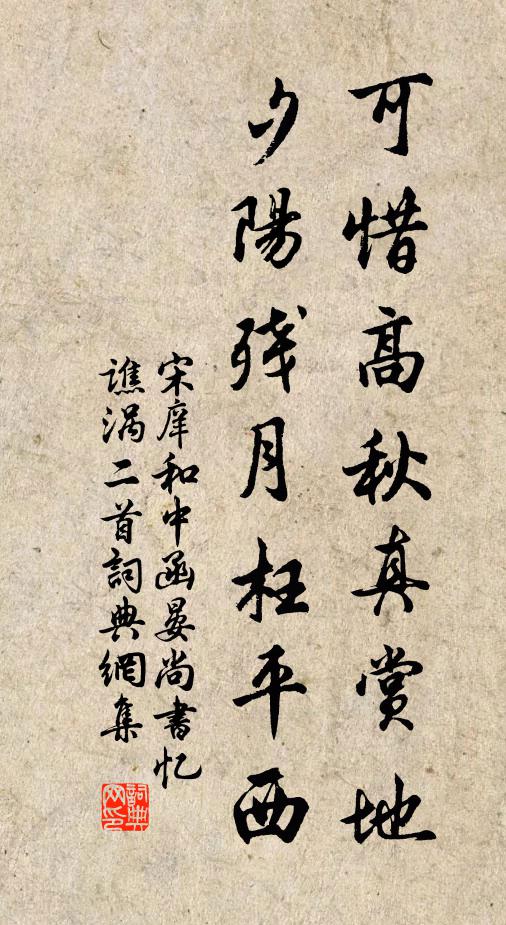 可惜高秋真赏地
夕陽残月枉平西
宋庠和中函晏尚書忆
譙涡二首詞典網集
詞典网印